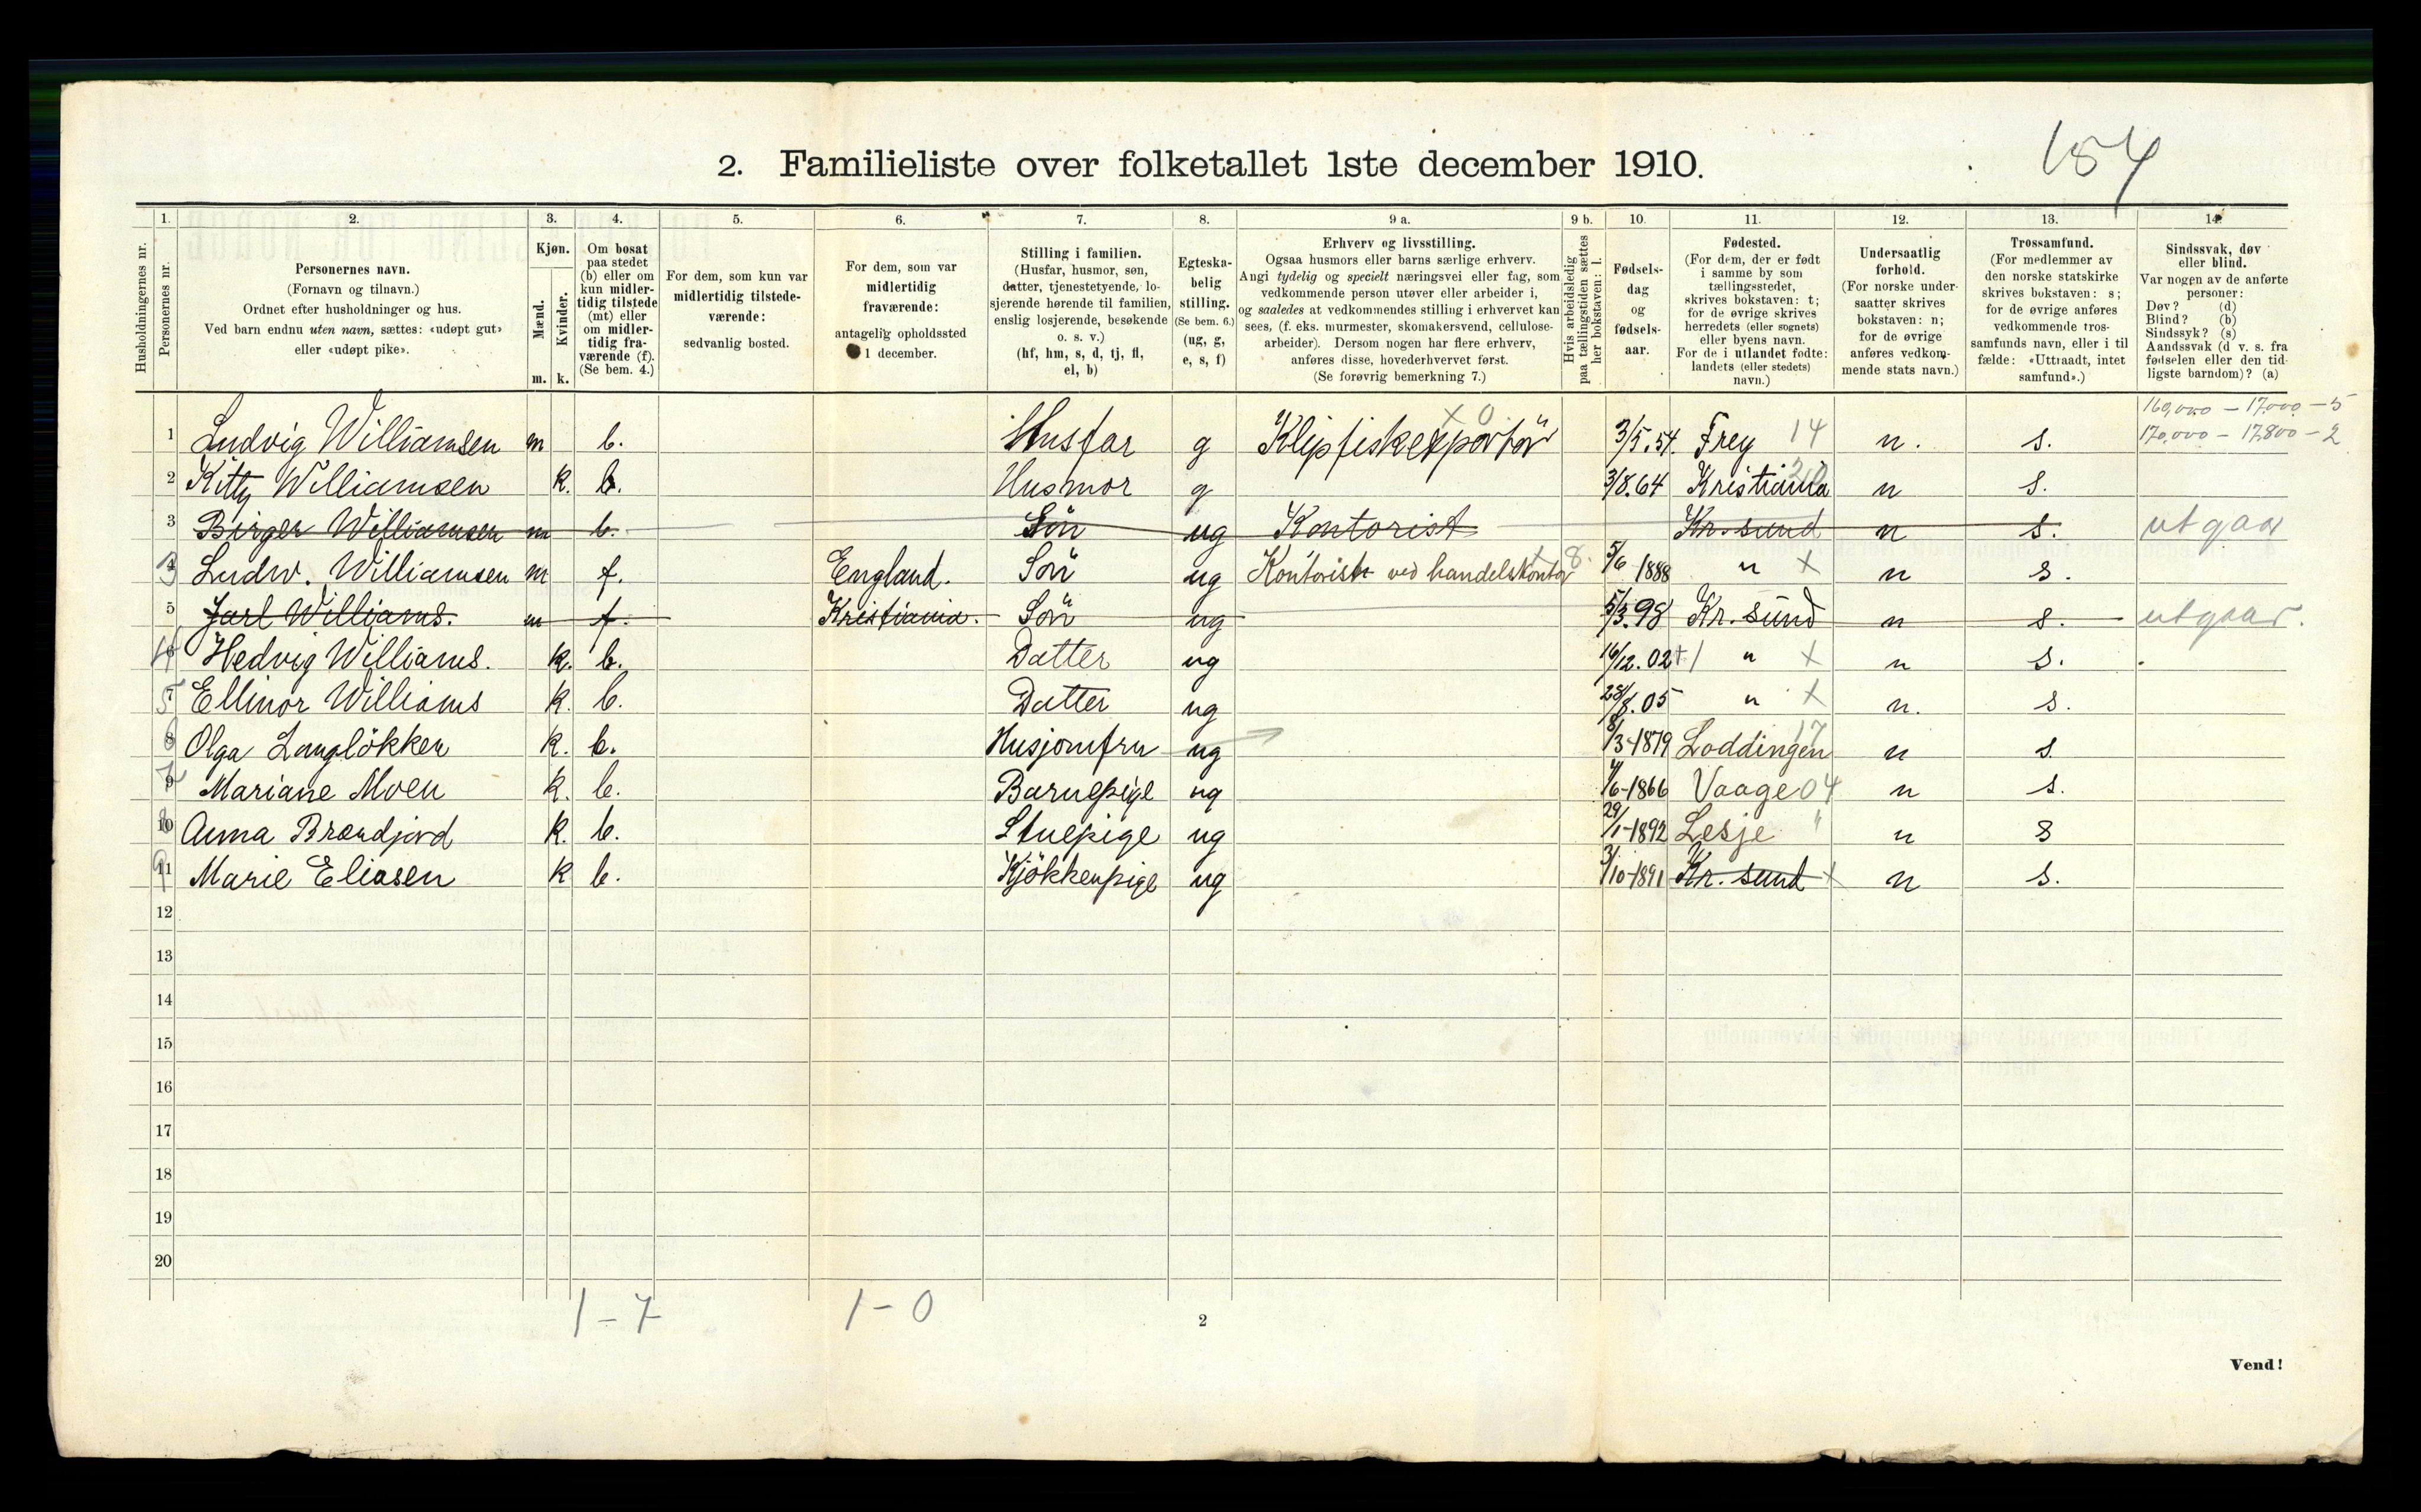 154
2. Familieliste over folketallet 1ste december 1910.
1. 2. 3. 4. 5. 6. 7. 8. 9 a. 9 b. 10. 11. 12. 13. 14.
Husholdningernes nr.
Personernes nr.
Personernes navn.
(Fornavn og tilnavn.)
Ordnet efter husholdninger og hus.
Ved barn endnu uten navn, sættes: «udøpt gut»
eller «udøpt pike».
Kjøn.
Mænd.
Kvinder.
m. k.
Om bosat
paa stedet
(b) eller om
kun midler-
tidig tilstede
(mt) eller
om midler-
tidig fra-
værende (f).
(Se bem. 4.)
For dem, som kun var
midlertidig tilstede-
værende:
sedvanlig bosted.
For dem, som var
midlertidig
fraværende:
antagelig opholdssted
1 december.
Stilling i familien.
(Husfar, husmor, søn,
datter, tjenestetyende, lo-
sjerende hørende til familien,
enslig losjerende, besøkende
o. s. v.)
(hf, hm, s, d, tj, fl,
el, b)
Egteska-
belig
stilling.
(Se bem. 6.)
(ug, g,
e, s, f)
Erhverv og livsstilling.
Ogsaa husmors eller barns særlige erhverv.
Angi tydelig og specielt næringsvei eller fag, som
vedkommende person utøver eller arbeider i,
og saaledes at vedkommendes stilling i erhvervet kan
sees, (f. eks. murmester, skomakersvend, cellulose-
arbeider). Dersom nogen har flere erhverv,
anføres disse, hovederhvervet først.
(Se forøvrig bemerkning 7.)
Hvis arbeidsledig
paa tællingstiden sættes
her bokstaven: l.
Fødsels-
dag
og
fødsels-
aar.
Fødested.
(For dem, der er født
i samme by som
tællingsstedet,
skrives bokstaven: t;
for de øvrige skrives
herredets (eller sognets)
eller byens navn.
For de i utlandet fødte:
landets (eller stedets)
navn.)
Undersaatlig
forhold.
(For norske under-
saatter skrives
bokstaven: n;
for de øvrige
anføres vedkom-
mende stats navn.)
Trossamfund.
(For medlemmer av
den norske statskirke
skrives bokstaven: s;
for de øvrige anføres
vedkommende tros-
samfunds navn, eller i til
fælde: «Uttraadt, intet
samfund».)
Sindssvak, døv
eller blind.
Var nogen av de anførte
personer:
Døv? (d)
Blind? (b)
Sindssyk? (s)
Aandssvak (d v. s. fra
fødselen eller den tid-
ligste barndom)? (a)
160,000 – 17,000 – 5
1 Ludvig Williamsen m b. Husfar g Klipfiskexportör x 0 3/5.54. Frey 14 n. s. 170,000 – 17,800 – 2
2 Kitty Williamsen k. b. Husmor g 3/8.64 Kristiania n s.
3 Birger Williamsen m b. Sön ug Kontorist Kr. sund n s. utgaar
3 Ludw. Williamsen m f. England. Sön ug Kontorist ved handelskontor x 8. 5/6 1888 " x n s.
5 Jarl Williams. m f. Kristiania. Sön ug 5/3.98 Kr. sund n s. utgaar.
4 Hedvig Williams. k. b. Datter ug 16/12.02 " x n s.
5 Ellinor Williams k. b. Datter ug 28/8.05 " x n. s.
6 Olga Langlökken k. b. Husjomfru ug 8/3-1879 Loddingen 17 n s.
7 Mariane Moen k. b. Barnepige ug /6-1866 Vaage 04 n s.
8 Anna Brændjord k. b. Stuepige ug 29/1-1892 Lesje " n s
9 Marie Eliasen k b. Kjökkenpige ug 3/10-1891 Kr. sund x n s.
12
13
14
15
16
17
18
19
20
1 – 7 1 – 0
2
Vend!